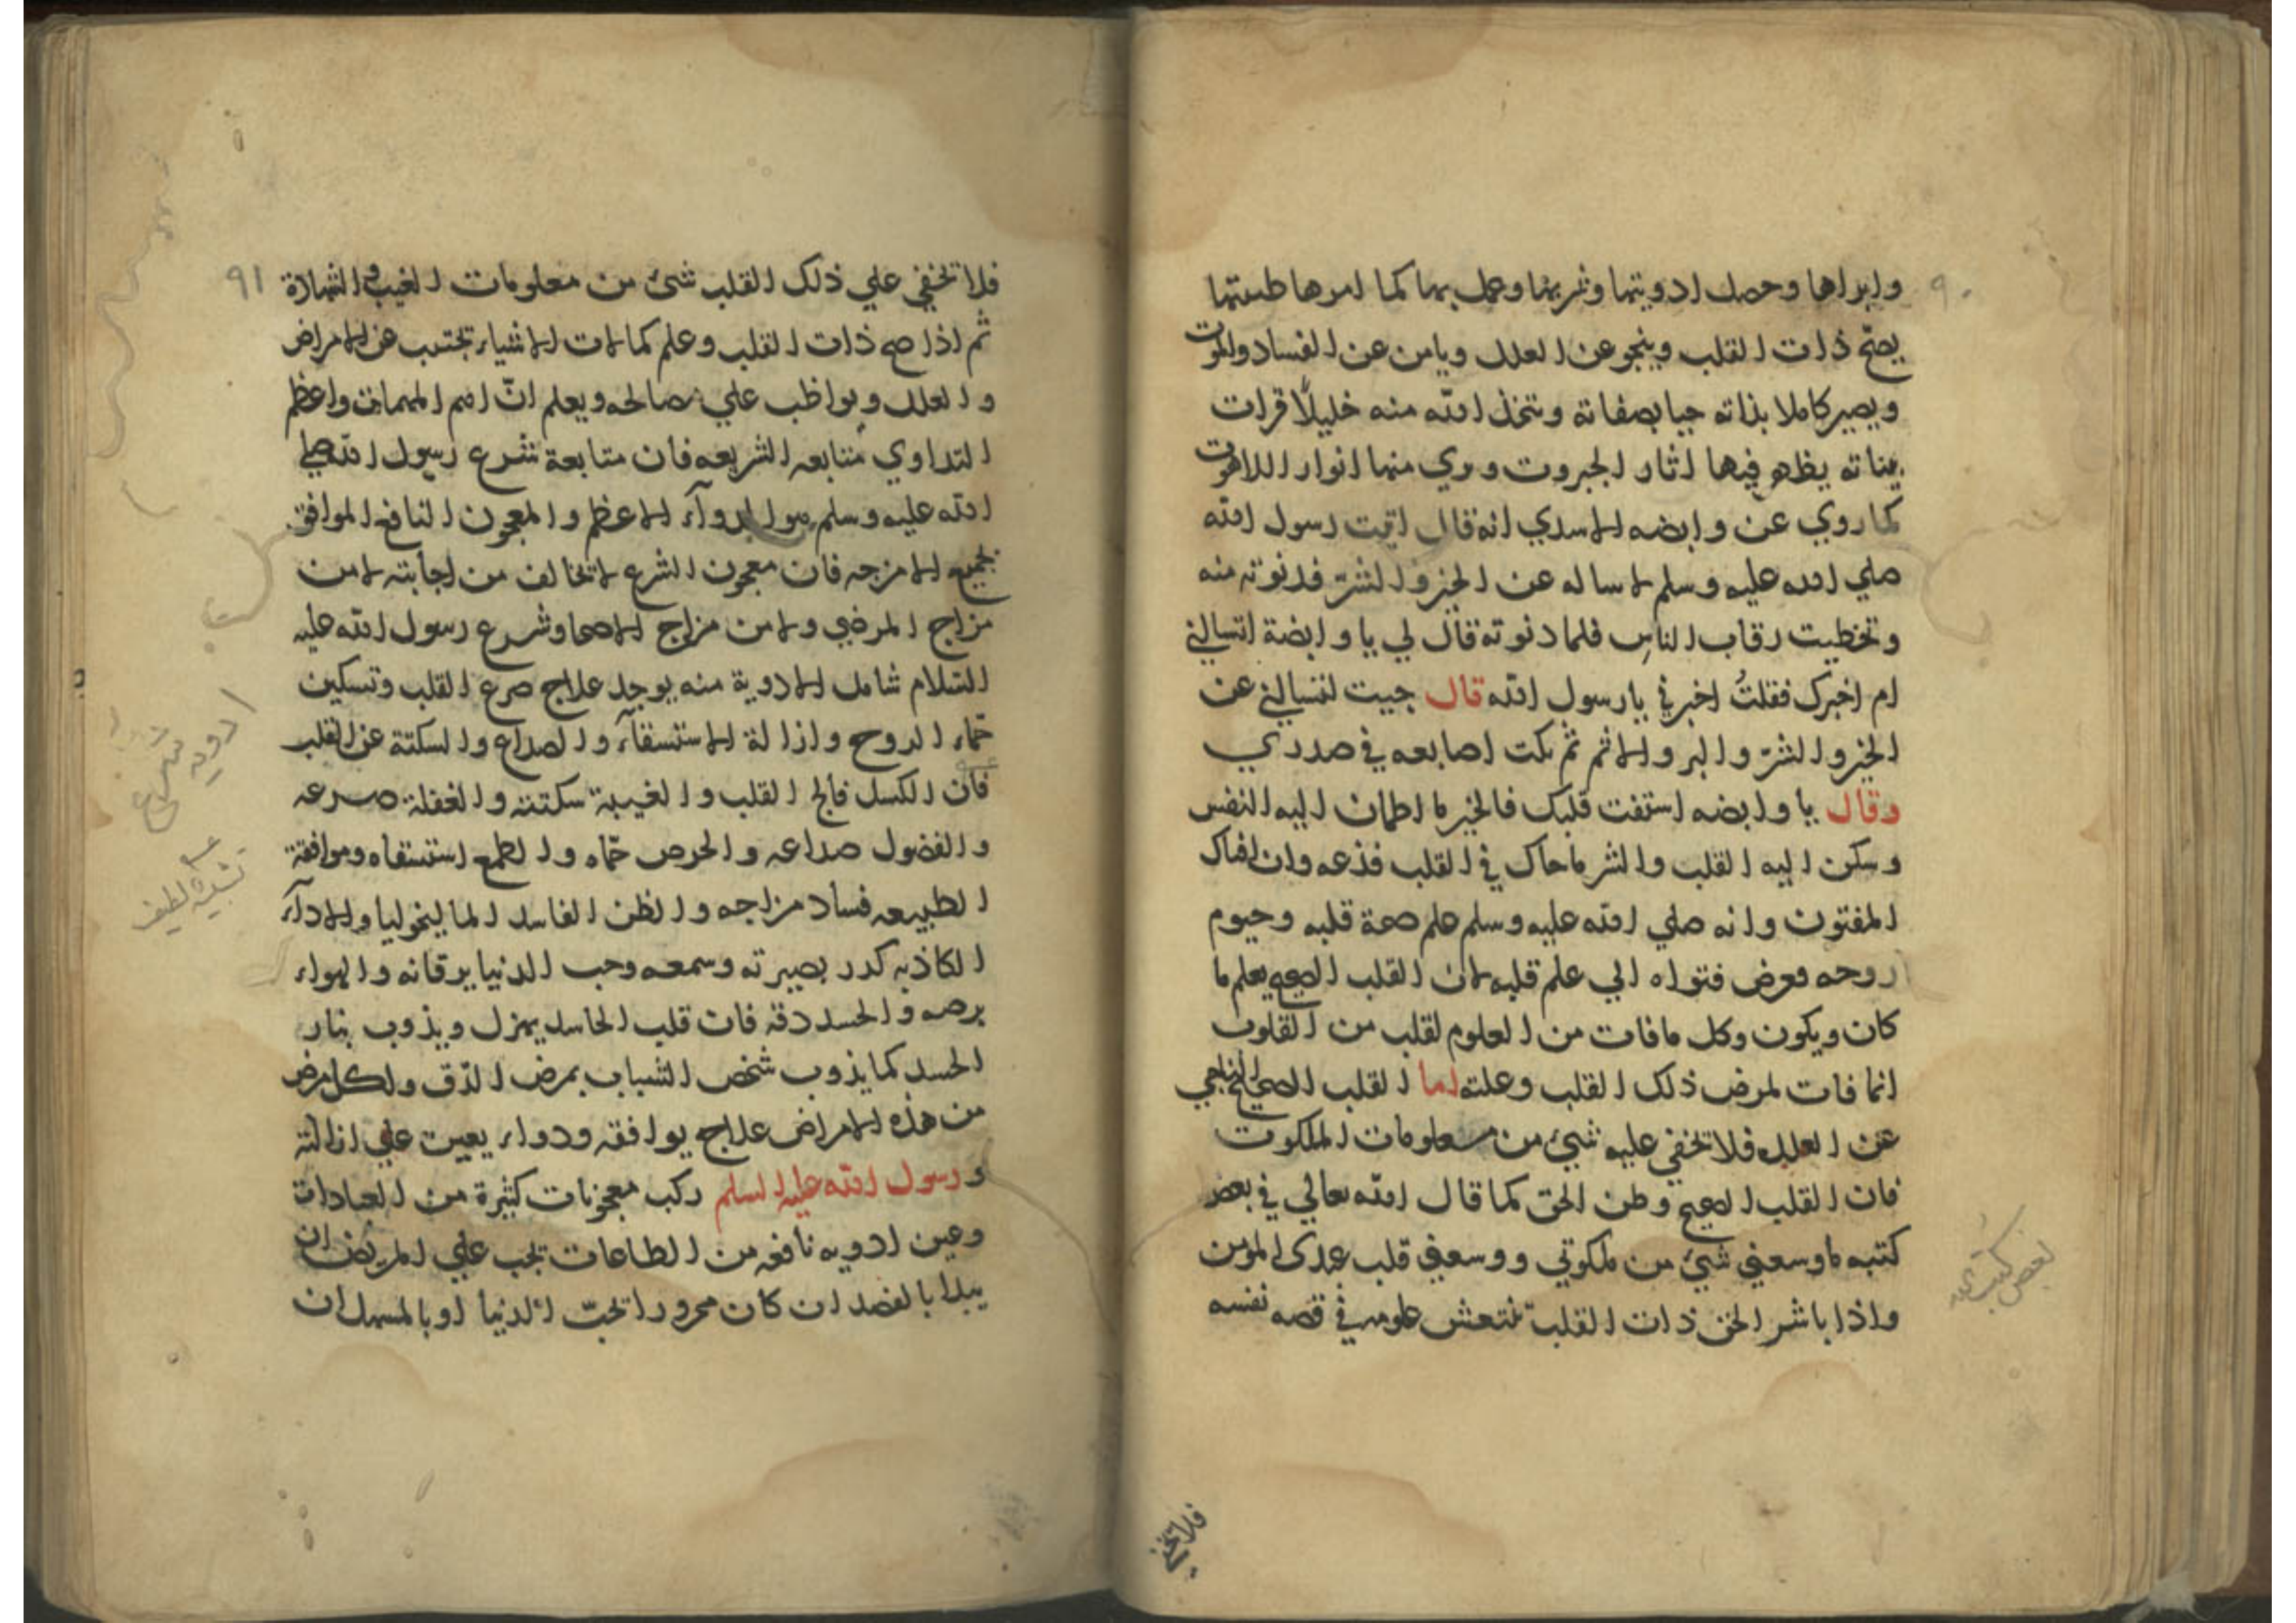 ٩٠
وابراها وحصل ادويتها وشربها وعمل بها كما امرها طبيبها
يصحّ ذات القلب وينجو عن العلل ويامن عن الفساد والموت
ويصير كاملا بذاته حيا بصفاته ويتخذ الله منه خليلًا قرات
يناته يظهر فيها اثار الجبروت ويري منها انوار اللاهوت
كما روي عن وابضه الاسدي انه قال اتيت رسول الله
صلي الله عليه وسلم لاساله عن الخير والشرّ فدنوته منه
وتخطيت رقاب الناس فلما دنوته قال لي يا وابضة اتسالني
ام اخبرك فقلتُ اخبرني يا رسول الله قال جيت لتسالني عن
الخير والشرّ والبر والاثم ثم نكت اصابعه في صدري
وقال يا وابضه استفت قلبك فالخير ما اطمان اليه النفس
وسكن اليه القلب والشر ما حاك في القلب فدعه وان افتاك
المفتون وانه صلي الله عليه وسلم علم صحة قلبه وحيوم
روحه فعرض فتواه الي علم قلبه لان القلب الصحيح يعلم ما
كان ويكون وكل ما فات من العلوم لقلب من القلوب
انما فات لمرض ذلك القلب وعلته اما القلب الصحيح الناجي
عن العلل فلا تخفي عليه شيئ من معلومات الملكوت
فان القلب الصحيح وطن الحق كما قال الله تعالي في بعض
كتبه ما وسعني شيئ من ملكوتي ووسعني قلب عبدي المومن
واذا باشر الحق ذات القلب تنتعش علومه في قصه نفسه
بعض كتب
فلا تخفي
٩١
فلا تخفي علي ذلك القلب شئ من معلومات الغيب والشهادة
ثم اذا صح ذات القلب وعلم كمالات الاشياء تجتنب عن الامراض
والعلل ويواظب علي مصالحه ويعلم انّ اهم المهمات واعظم
التداوي متابعه الشريعه فان متابعة شرع رسول الله صلي
الله عليه وسلم هو الدوآء الاعظم والمعجون النافع الموافق
لجميع الامزجه فان معجون الشرع لا تخالف من اجابته لا من
مزاج المرضي ولا من مزاج الاصحا وشرع رسول الله عليه
السّلام شامل الادوية منه يوجد علاج صرع القلب وتسكين
حمّاء الروح وازالة الاستسقآء والصداع والسكتة عن القلب
فان الكسل فالج القلب والغيبة سكتته والغفلة صرعه
والفضول صداعه والحرص حمّاه والطمع استسقاه وموافقة
الطبيعه فساد مزاجه والظن الفاسد الماليخوليا والادآء
الكاذبه كدر بصيرته وسمعه وحب الدنيا يرقانه والهواء
برصه والحسد دقه فان قلب الحاسد يهزل ويذوب بنار
الحسد كما يذوب شخص الشباب بمرض الدّق ولكل مرض
من هذه الامراض علاج يوافقه ودواء يعين علي ازالته
ورسول الله عليه السلم ركب معجونات كثيرة من العبادات
وعين ادويه نافعه من الطاعات تجب علي المريض ان
يبدا بالفصد ان كان محرورا بحبّ الدنيا او بالمسهل ان
ادويه شرع
تشبيه لطيف